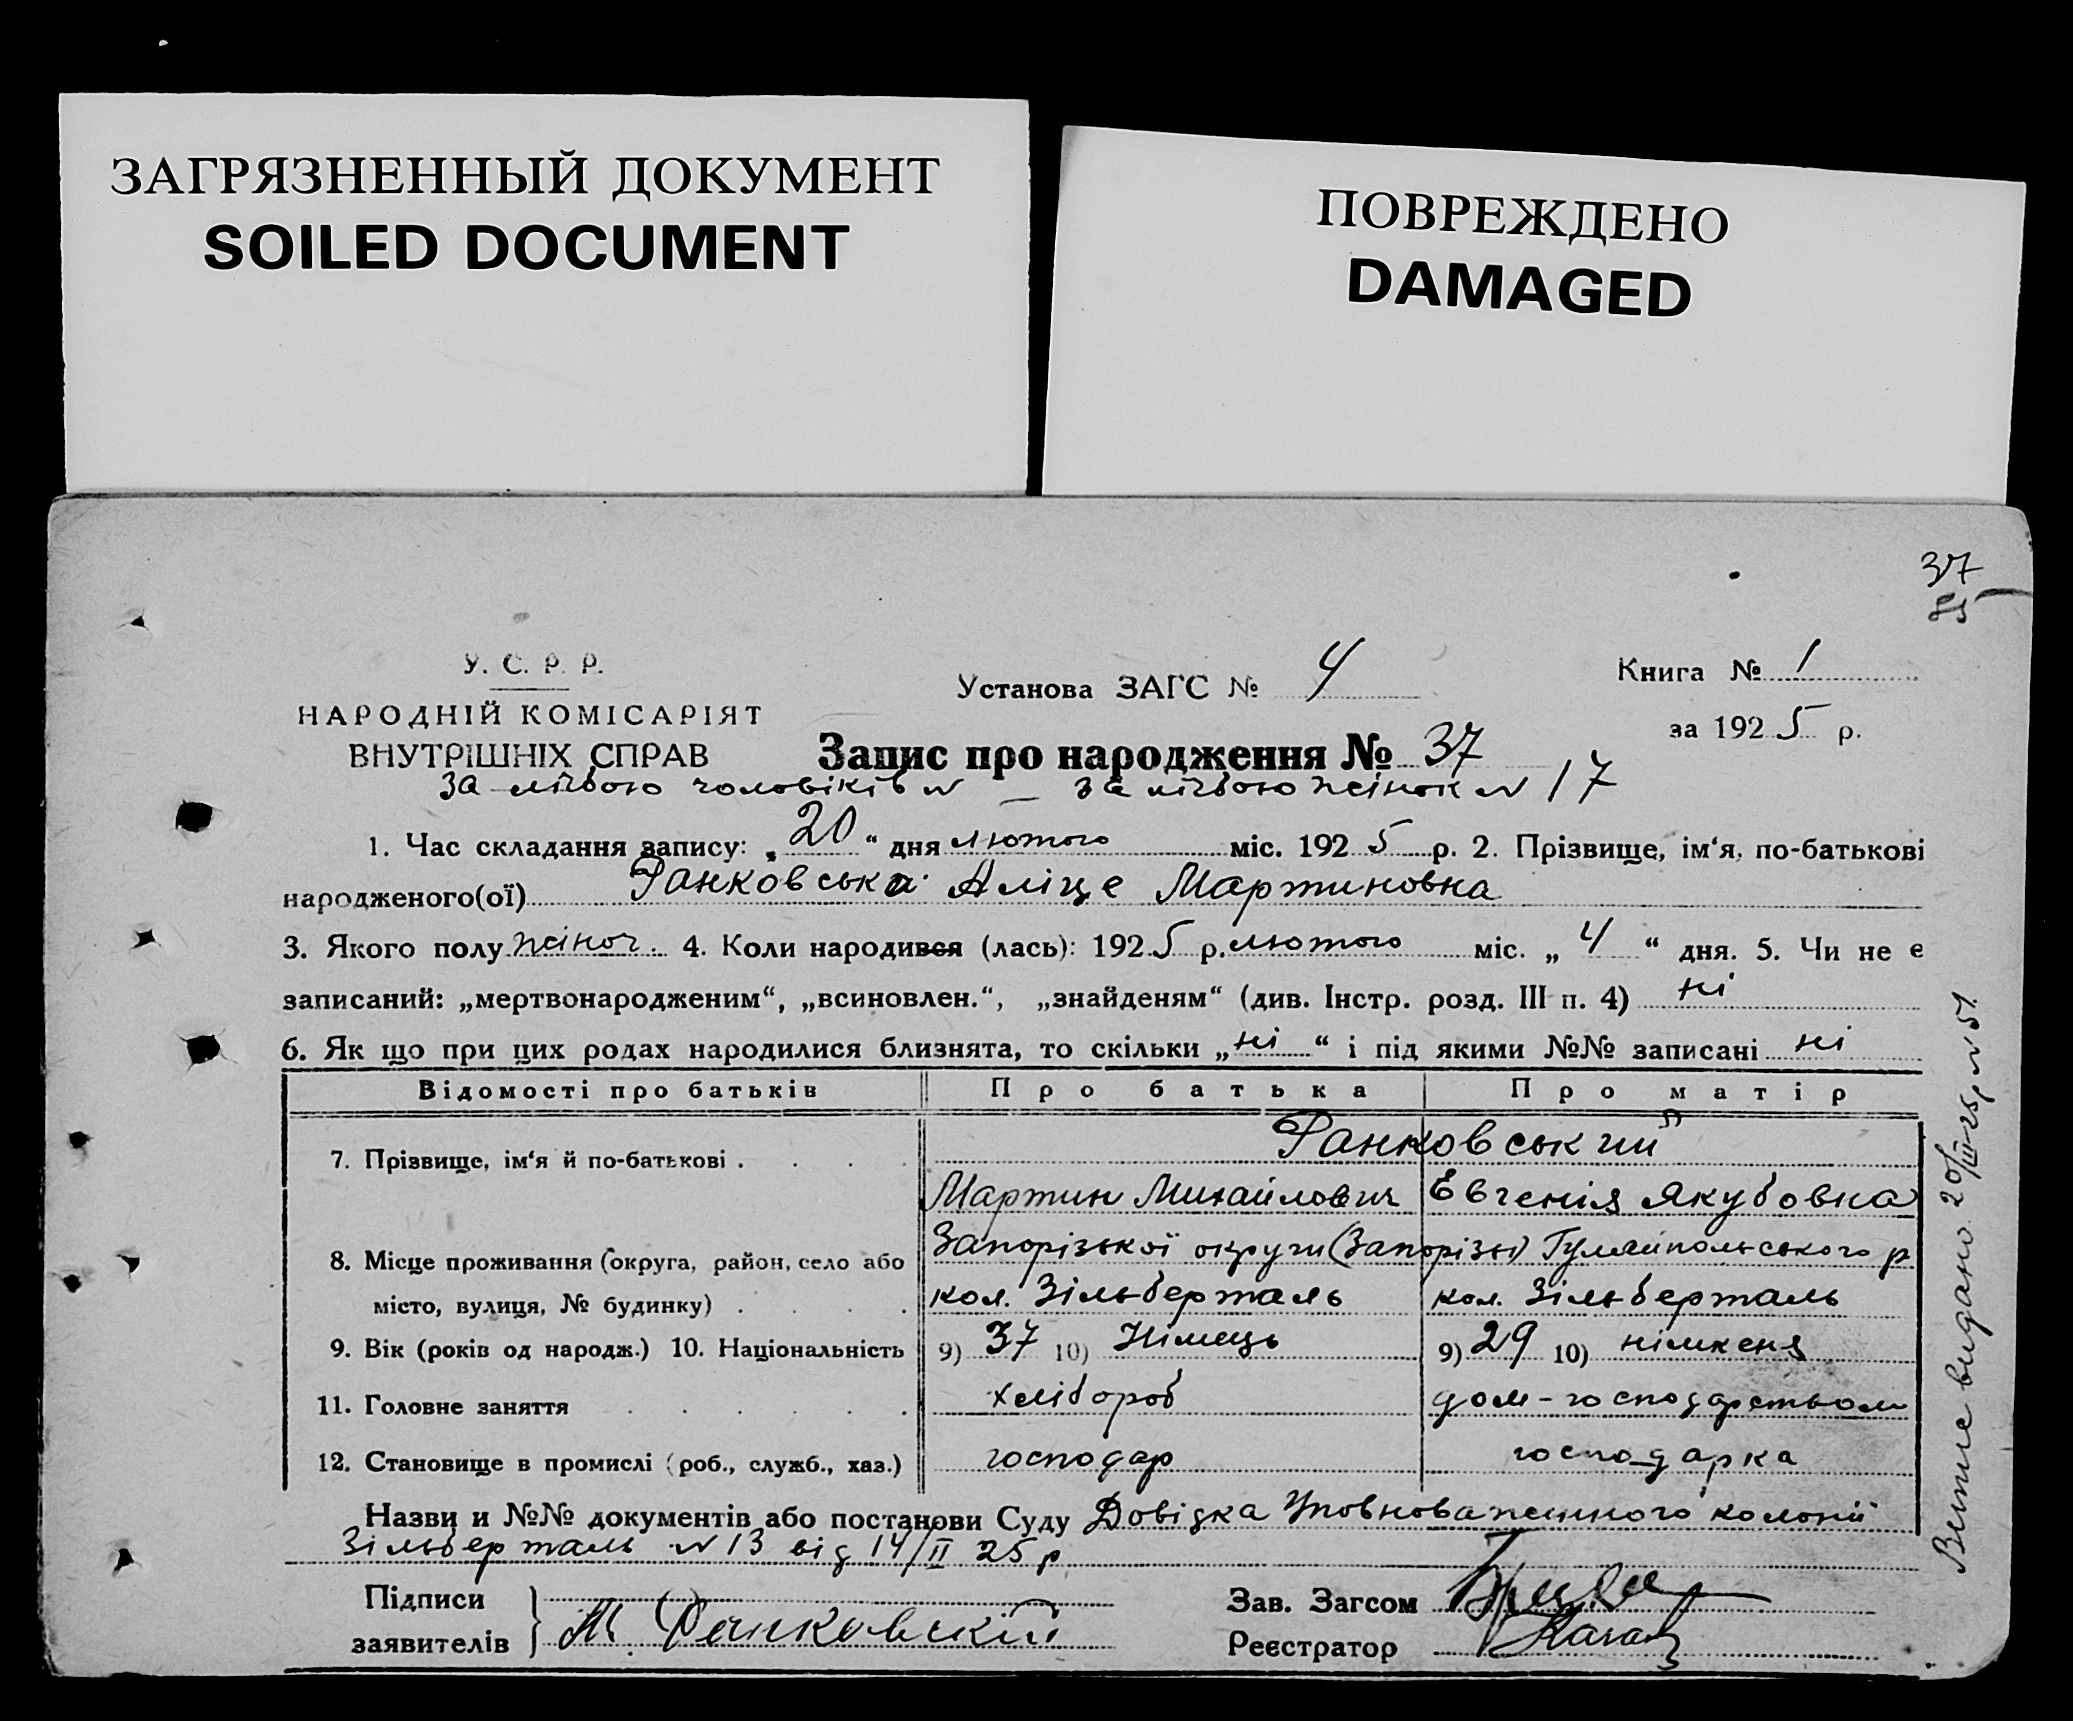 ЗАГРЯЗНЕННЫЙ ДОКУМЕНТ
SOILED DOCUMENT
ПОВРЕЖДЕНО
DAMAGED
37
У. С. Р. Р.
НАРОДНІЙ КОМІСАРІЯТ
ВНУТРІШНІХ СПРАВ
Установа ЗАГС № 4
Книга № 1
за 1925 р.
Запис про народження № 37
за лічбою чоловіків № — за лічбою жінок № 17
1. Час складання запису: „20“ дня лютого міс. 1925 р. 2. Прізвище, ім‘я, по-батькові
народженого(ої) Ранковська Аліце Мартиновна
3. Якого полу жіноч. 4. Коли народився (лась): 1925 р. лютого міс. „4“ дня. 5. Чи не є
записаний: „мертвонародженим“, „всиновлен.“, „знайденям“ (див. Інстр. розд. III п. 4) ні
6. Як що при цих родах народилися близнята, то скільки „ні“ і під якими №№ записані ні
Відомості про батьків Про батька Про матір
7. Прізвище, ім‘я й по-батькові . . . . Ранковський
Мартин Михайлович Евгенія Якубовна
8. Місце проживання (округа, район, село або Запорізької округи (Запорізьк) Гуляйпольського р
місто, вулиця, № будинку) . . . . кол. Зільберталь кол. Зільберталь
9. Вік (років од народж.) 10. Національність 9) 37 10) Німець 9) 29 10) німкеня
11. Головне заняття . . . . . . хлібороб дом-господарством
12. Становище в промислі (роб., служб., хаз.) господар господарка
Назви и №№ документів або постанови Суду Довідка Уповноваженного колонії
Зільберталь № 13 від 14/II 25 р
Підписи
заявителів М. Ранковскій
Зав. Загсом
Реєстратор
Витяг видано 20/III-25р № 51.